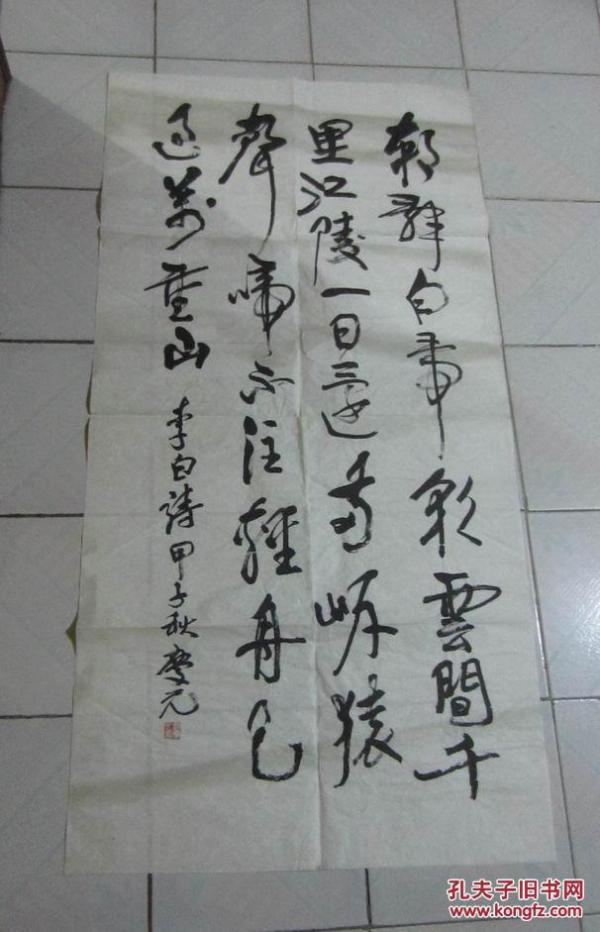 朝辭白帝彩雲間千
里江陵一日還兩岸猿
聲啼不住輕舟已
過萬重山 李白詩 甲子秋慶元
孔夫子旧书网
www.kongfz.com